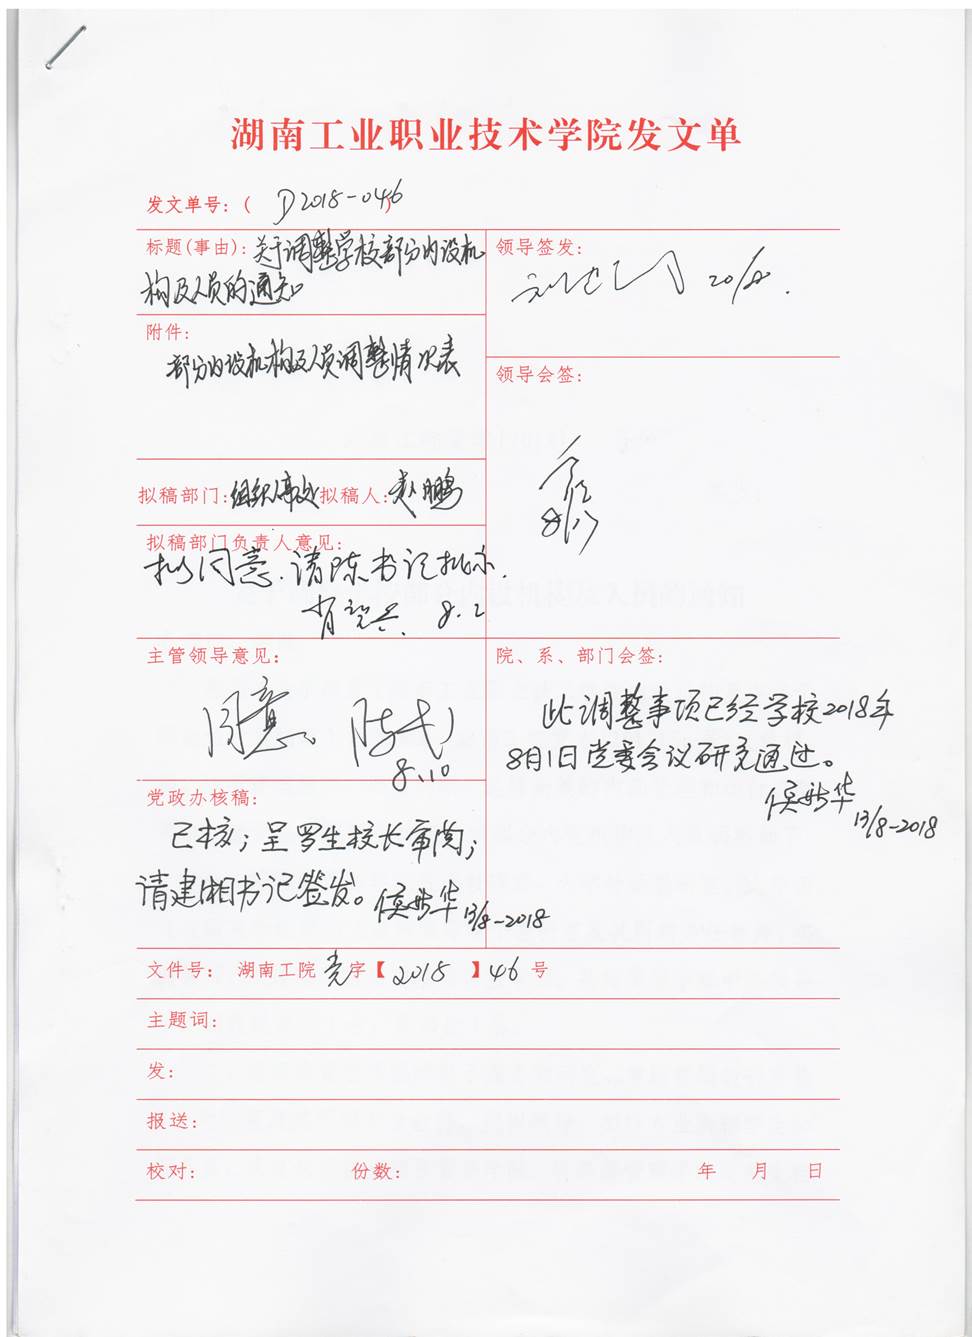 湖南工业职业技术学院发文单
发文单号：（ D2018-046）
标题(事由)：关于调整学校部分内设机
构及人员的通知
领导签发：
20/8.
附件：
部分内设机构及人员调整情况表
领导会签：
拟稿部门：组织人事处 拟稿人：赵鹏
拟稿部门负责人意见：
拟同意.请陈书记批示.
8.2
主管领导意见：
同意。
8.10
院、系、部门会签：
此调整事项已经学校2018年
8月1日党委会议研究通过。
13/8-2018
党政办核稿：
已核；呈罗生校长审阅；
请建湘书记签发。 13/8-2018
文件号： 湖南工院党字【2018】46号
主题词：
发：
报送：
校对： 份数： 年 月 日